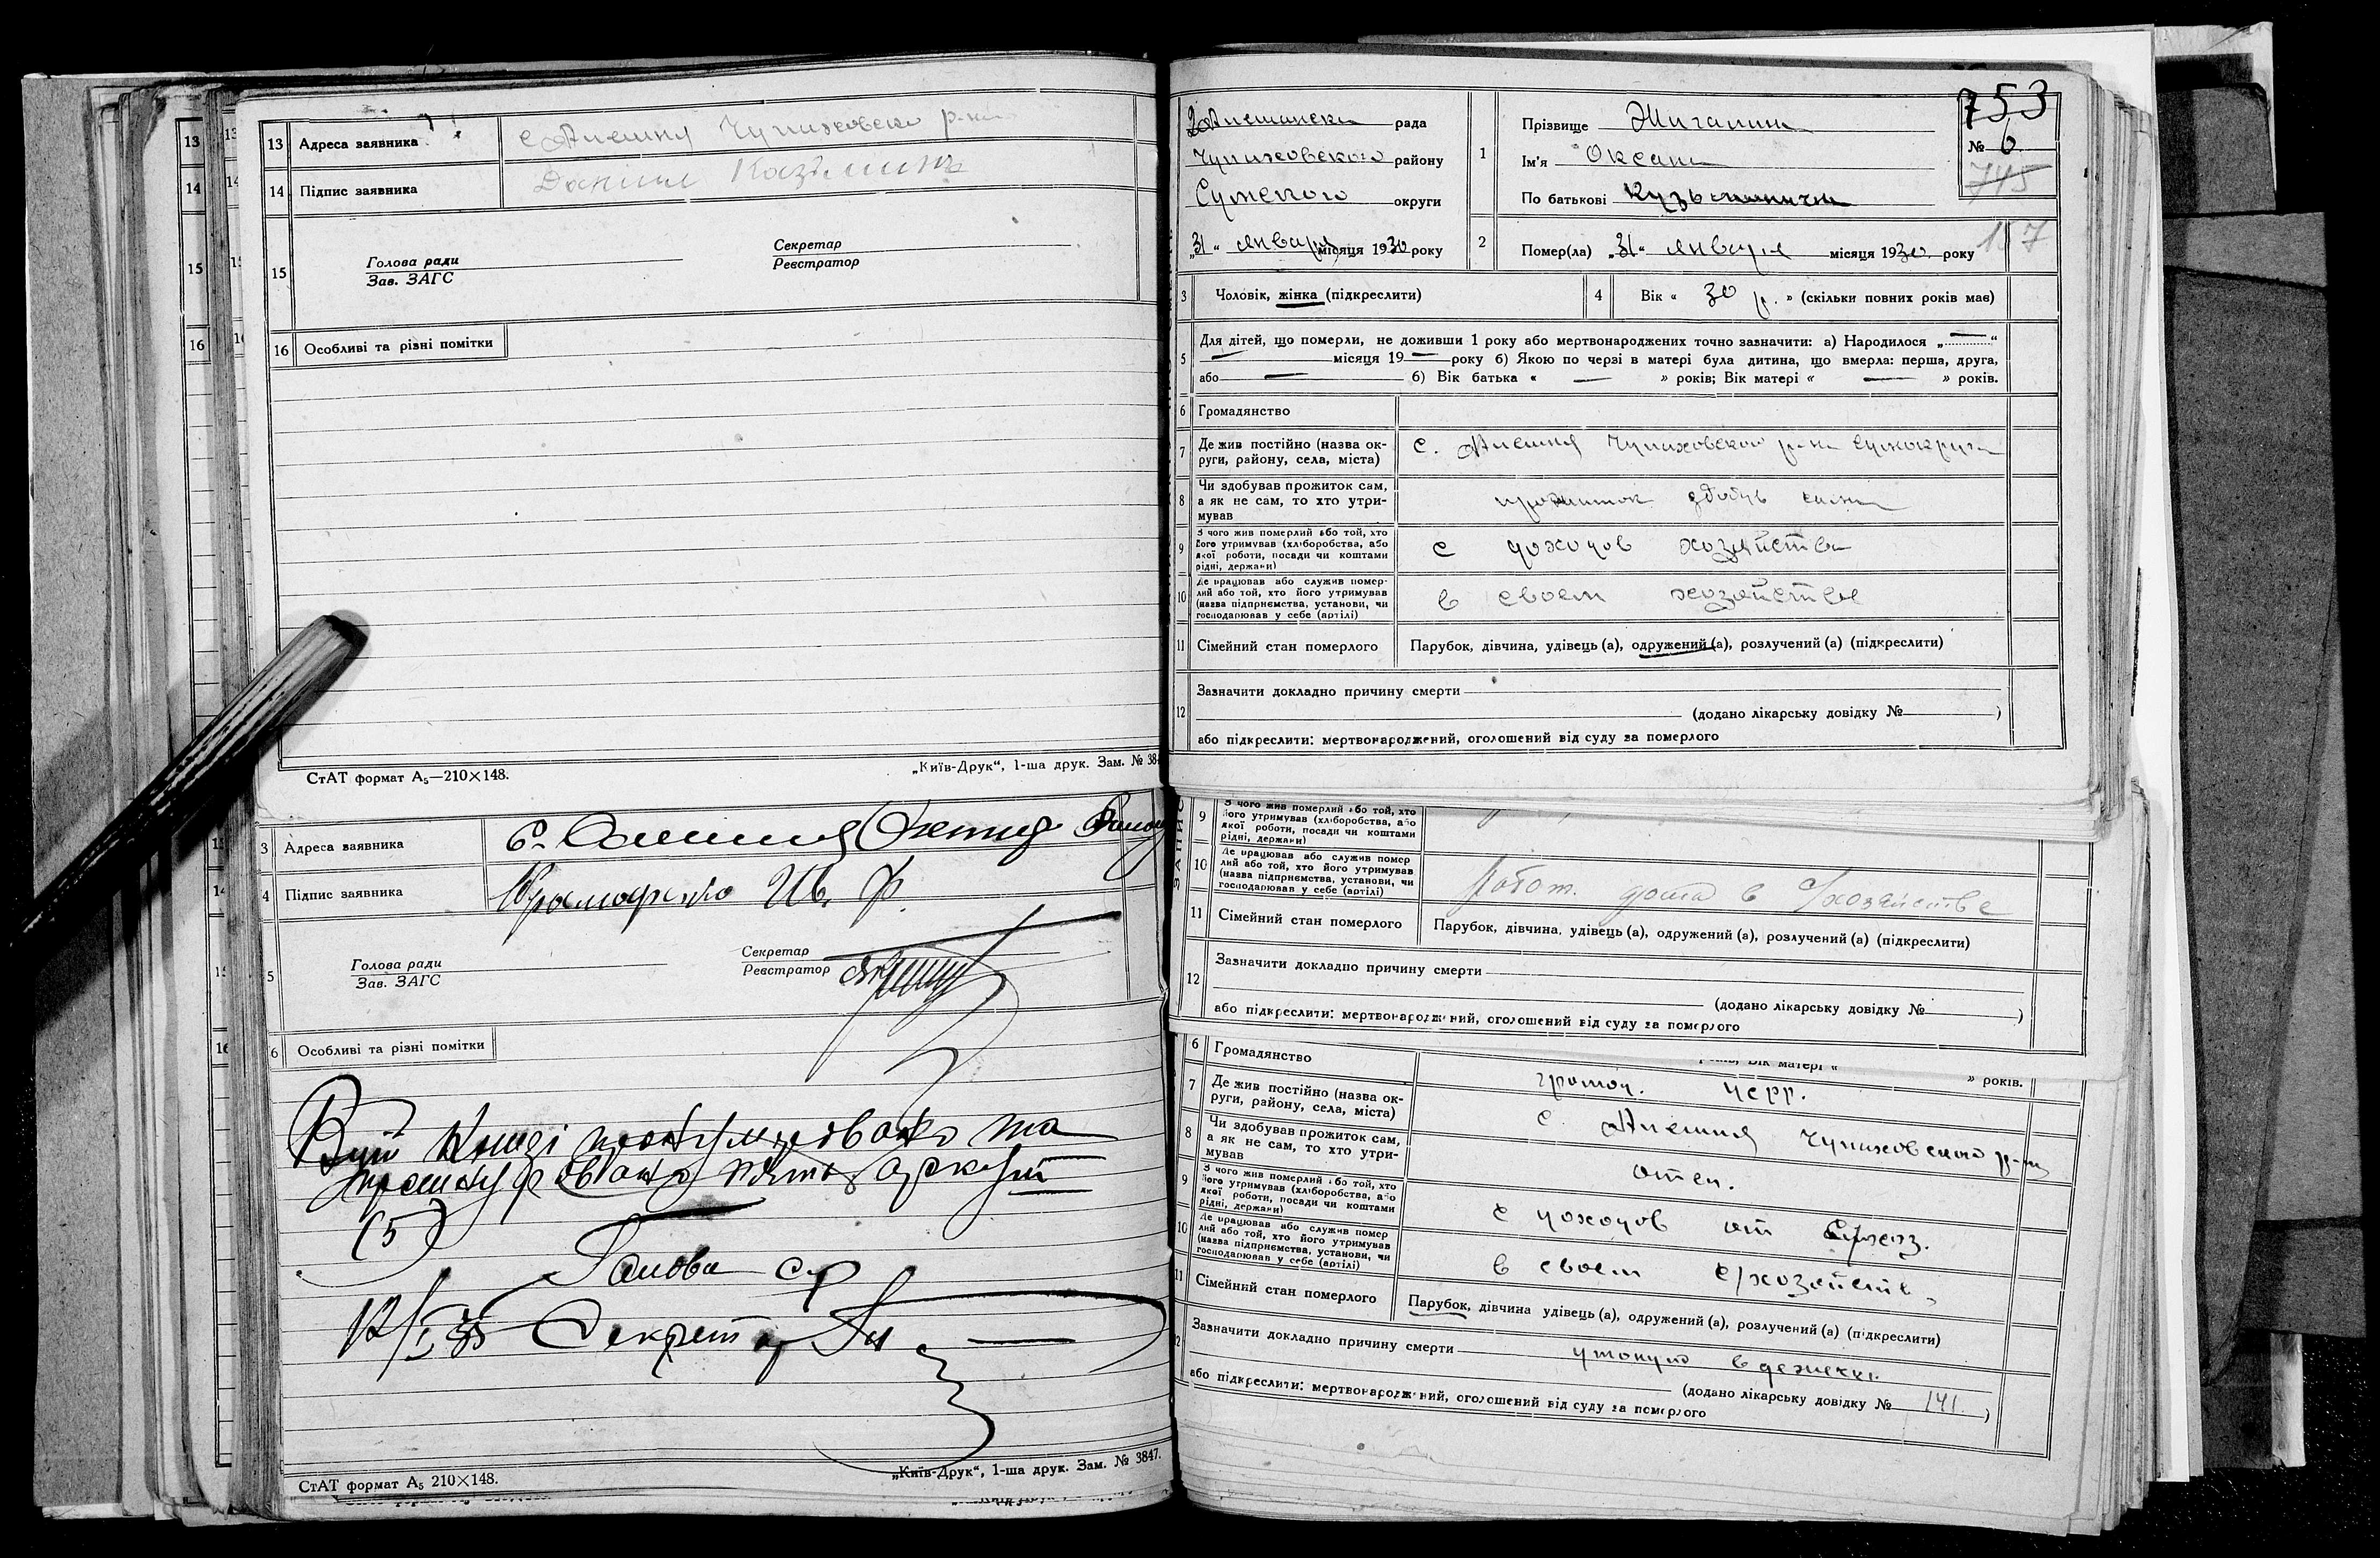 13 Адреса заявника
14 Підпис заявника Даниил
15 Голова ради
Зав. ЗАГС
Секретар
Реєстратор
16 Особливі та різні помітки
СтАТ формат А₅—210×148.
„Київ-Друк“, 1-ша друк. Зам. № 384
3 Адреса заявника с.
4 Підпис заявника Ив. Ф.
5 Голова ради
Зав. ЗАГС
Секретар
Реєстратор
6 Особливі та різні помітки
В цій книзі пронумеровано та
прошнуровано пять аркушів
(5)
Голова с/р
Секретар
СтАТ формат А₅ 210×148.
„Київ-Друк“, 1-ша друк. Зам. № 3847.
753
№ 6
745
рада
Чупиховского району
Сумского округи
„31“ января місяця 1930 року
1 Прізвище
Ім'я Оксана
По батькові
2 Помер(ла) „31“ января місяця 1930 року
3 Чоловік, жінка (підкреслити)
4 Вік « 30 р. » (скільки повних років мав)
5 Для дітей, що померли, не доживши 1 року або мертвонароджених точно зазначити: а) Народилося „ “
місяця 19 року б) Якою по черзі в матері була дитина, що вмерла: перша, друга,
або б) Вік батька « » років; Вік матері « » років.
6 Громадянство
7 Де жив постійно (назва ок-
руги, району, села, міста)
с. Чупиховского р-на Сумокруги
8 Чи здобував прожиток сам,
а як не сам, то хто утри-
мував
прожиток
9 З чого жив померлий або той, хто
його утримував (хліборобства, або
якої роботи, посади чи коштами
рідні, держави)
с доходов хозяйства
10 Де працював або служив помер-
лий або той, хто його утримував
(назва підприємства, установи, чи
господарював у себе (артілі)
в своем хозяйстве
11 Сімейний стан померлого
Парубок, дівчина, удівець (а), одружений (а), розлучений (а) (підкреслити)
12 Зазначити докладно причину смерти
(додано лікарську довідку № )
або підкреслити: мертвонароджений, оголошений від суду за померлого
9 З чого жив померлий або той, хто
його утримував (хліборобства, або
якої роботи, посади чи коштами
рідні, держави)
10 Де працював або служив помер
лий або той, хто його утримував
(назва підприємства, установи, чи
господарював у себе (артілі)
Работ. дома в с/хозяйстве
11 Сімейний стан померлого
Парубок, дівчина, удівець (а), одружений (а), розлучений (а) (підкреслити)
12 Зазначити докладно причину смерти
(додано лікарську довідку № )
або підкреслити: мертвонароджений, оголошений від суду за померлого
Вік матері « » років.
6 Громадянство
7 Де жив постійно (назва ок-
руги, району, села, міста)
с. Чупиховского р-на
8 Чи здобував прожиток сам,
а як не сам, то хто утри-
мував
отец.
9 З чого жив померлий або той, хто
його утримував (хліборобства, або
якої роботи, посади чи коштами
рідні, держави)
с доходов от
10 Де працював або служив помер
лий або той, хто його утримував
(назва підприємства, установи, чи
господарював у себе (артілі)
в своем с/хозяйств.
11 Сімейний стан померлого
Парубок, дівчина удівець (а), одружений (а), розлучений (а) (підкреслити)
Зазначити докладно причину смерти утонул в
(додано лікарську довідку № 141 )
або підкреслити: мертвонароджений, оголошений від суду за померлого